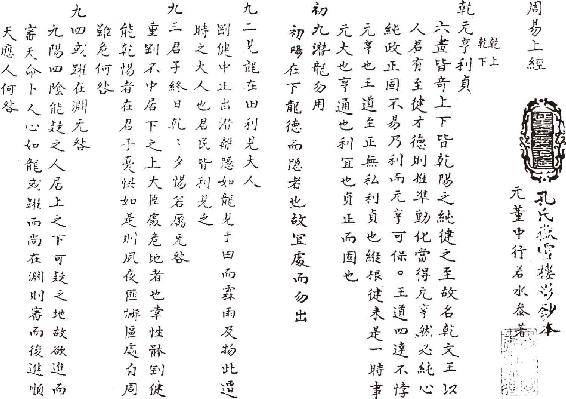 周易上經
孔氏嶽雪樓影鈔本
元董中行若水叅著
乾上
乾下
乾元亨利貞
六畫皆奇上下皆乾陽之純健之至故名乾文王以
人君有至健才德則推準動化當得元亨然必純心
純政正固不易乃利而元亨可保。王道四達不悖
元亨也王道至正無私利貞也縱根健來是一時事
元大也亨通也利宜也貞正而固也
初九潛龍勿用
初陽在下龍德而隱者也故宜處而勿出
九二見龍在田利見大人
剛健中正出潛離隱如龍見于田而霖雨及物此遭
時之大人也君民皆利見之
九三君子終日乾〻夕惕若厲无咎
重剛不中居下之上大臣處危地者也幸性體剛健
能乾惕者在君子憂如是則夙夜匪懈區處自周
雖危何咎
九四或躍在淵无咎
九陽四陰能疑之人居上之下可疑之地故欲進而
審天命卜人心如龍或躍而尚在淵則審而後進順
天應人何咎